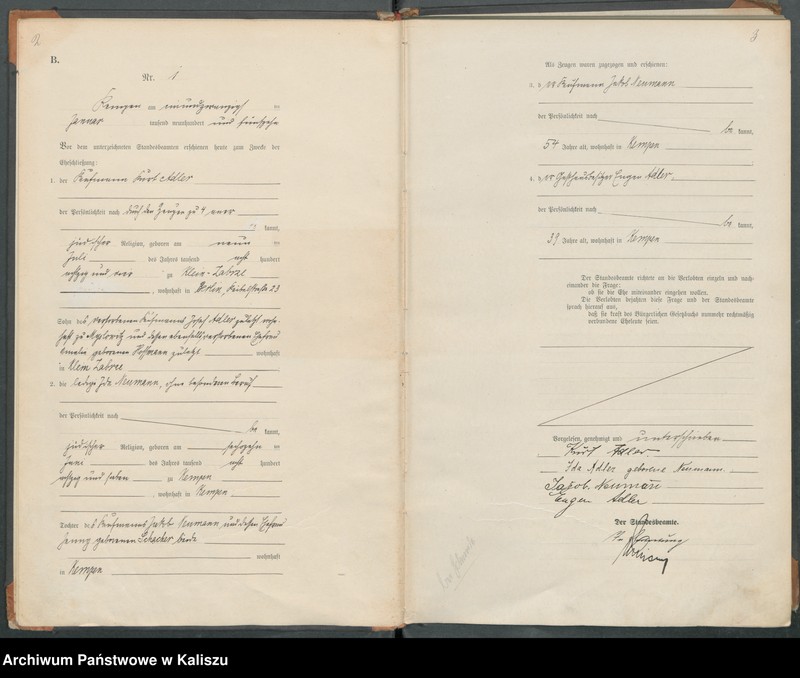 2
B.
Nr. 1
Kempen am neunundzwanzigsten
Januar tausend neunhundert und fünfzehn
Vor dem unterzeichneten Standesbeamten erschienen heute zum Zwecke der
Eheschließung:
1. der Kaufmann Kurt Adler
der Persönlichkeit nach durch den Zeugen zu 4
kannt,
jüdischer Religion, geboren am neunten
Juli des Jahres tausend acht hundert
achtzig und zu Klein-Zabrze
, wohnhaft in 23
Sohn des verstorbenen Kaufmanns Josef Adler zuletzt wohn-
haft zu Myslowitz und dessen ebenfalls verstorbenen Ehefrau
Amalie geborenen Hoffmann zuletzt wohnhaft
in Klein Zabrze
2. die ledige Ida Neumann, ohne besonderen Beruf
der Persönlichkeit nach
be kannt,
jüdischer Religion, geboren am sechszehnten
Juni des Jahres tausend acht hundert
achtzig und sieben zu Kempen
, wohnhaft in Kempen
Tochter des Kaufmanns Jakob Neumann, und dessen Ehefrau
Jenny geborenen Schacher, beide
wohnhaft
in Kempen
3
Als Zeugen waren zugezogen und erschienen:
3. der Kaufmann Jakob Neumann
der Persönlichkeit nach
be kannt,
54 Jahre alt, wohnhaft in Kempen
4. der Geschäftsbesitzer Eugen Adler,
der Persönlichkeit nach
be kannt,
39 Jahre alt, wohnhaft in Kempen
Der Standesbeamte richtete an die Verlobten einzeln und nach-
einander die Frage:
ob sie die Ehe miteinander eingehen wollen.
Die Verlobten bejahten diese Frage und der Standesbeamte
sprach hierauf aus,
daß sie kraft des Bürgerlichen Gesetzbuchs nunmehr rechtmäßig
verbundene Eheleute seien.
Vorgelesen, genehmigt und unterschrieben
Kurt Adler.
Ida Adler geborene Neumann.
Jacob Neumann
Eugen Adler
Der Standesbeamte.
In Vertretung
Archiwum Państwowe w Kaliszu